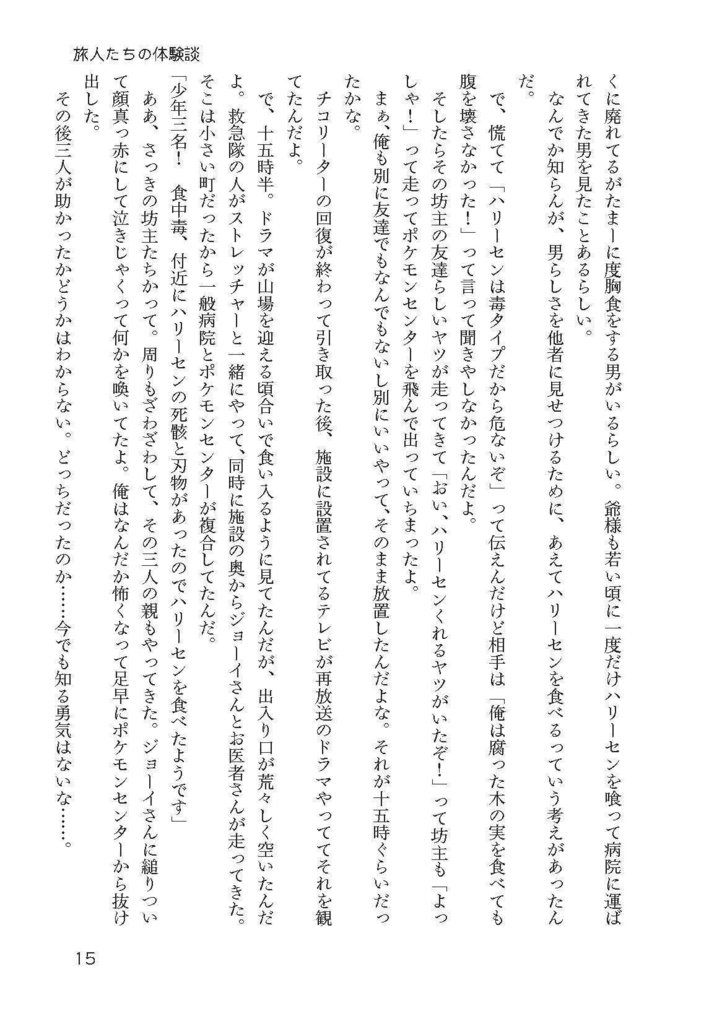 旅人たちの体験談
くに廃れてるがたまーに度胸食をする男がいるらしい。爺様も若い頃に一度だけハリーセンを喰って病院に運ば
れてきた男を見たことあるらしい。
　なんでか知らんが、男らしさを他者に見せつけるために、あえてハリーセンを食べるっていう考えがあったん
だ。
　で、慌てて「ハリーセンは毒タイプだから危ないぞ」って伝えんだけど相手は「俺は腐った木の実を食べても
腹を壊さなかった！」って言って聞きやしなかったんだよ。
　そしたらその坊主の友達らしいヤツが走ってきて「おい、ハリーセンくれるヤツがいたぞ！」って坊主も「よっ
しゃ！」って走ってポケモンセンターを飛んで出っていちまったよ。
　まぁ、俺も別に友達でもなんでもないし別にいいやって、そのまま放置したんだよな。それが十五時ぐらいだっ
たかな。
　チコリーターの回復が終わって引き取った後、施設に設置されてるテレビが再放送のドラマやっててそれを観
てたんだよ。
　で、十五時半。ドラマが山場を迎える頃合いで食い入るように見てたんだが、出入り口が荒々しく空いたんだ
よ。救急隊の人がストレッチャーと一緒にやって、同時に施設の奥からジョーイさんとお医者さんが走ってきた。
そこは小さい町だったから一般病院とポケモンセンターが複合してたんだ。
「少年三名！　食中毒、付近にハリーセンの死骸と刃物があったのでハリーセンを食べたようです」
　ああ、さっきの坊主たちかって。周りもざわざわして、その三人の親もやってきた。ジョーイさんに縋りつい
て顔真っ赤にして泣きじゃくって何かを喚いてたよ。俺はなんだか怖くなって足早にポケモンセンターから抜け
出した。
　その後三人が助かったかどうかはわからない。どっちだったのか……今でも知る勇気はないな……。
15